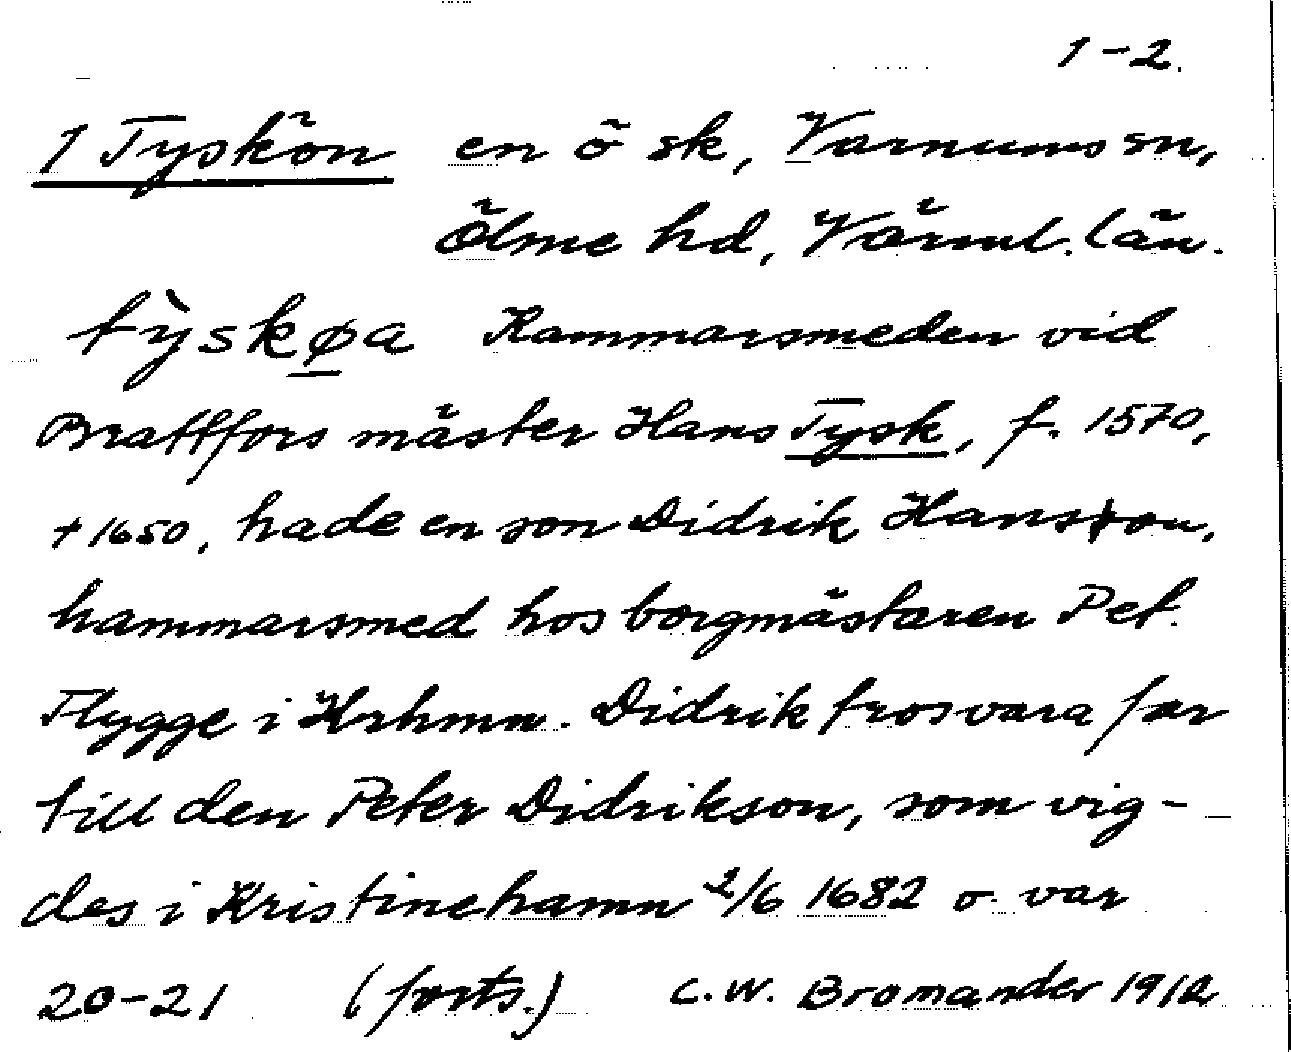 1-2.
1 Tyskön en ö sk, Varnums sn,
Ölme hd, Värml. län.
tỳskøa Hammarsmeden vid
Brattfors mäster Hans Tysk, f. 1570,
+1650, hade en son Didrik Hansson,
hammarsmed hos borgmästaren Pet.
Flygge i Krhmn. Didrik tros vara far
till den Peter Didrikson, som vig-
des i Kristinehamn 2/6 1682 o. var
20-21 (forts.) C.W. Bromander 1912